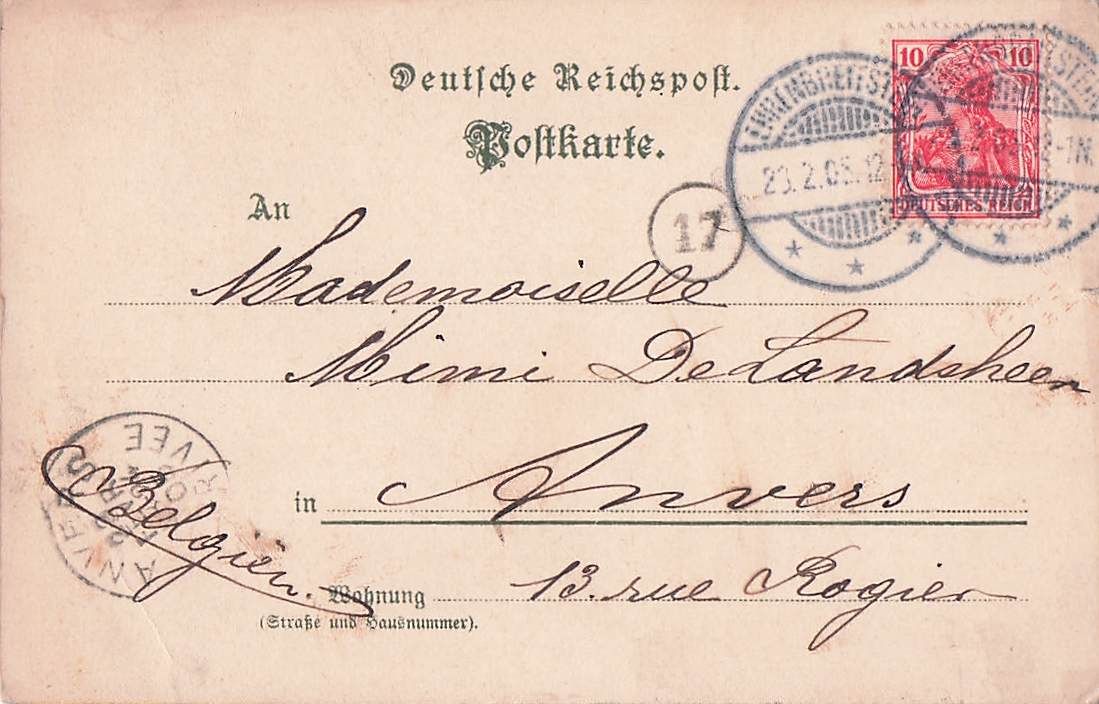 Deutsche Reichspost.
Postkarte.
10 10
DEUTSCHES REICH
EHRENBREITSTEIN
23.2.05.12-
-1N.
17
An
Mademoiselle
Mimi De Landsheer
in Anvers
ANVERS
ARRIVEE
Belgien.
13. rue Rogier
Wohnung
(Straße und Hausnummer).